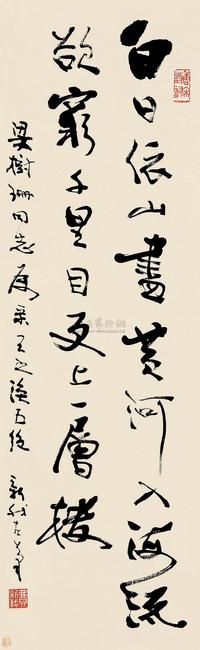 白日依山盡黄河入海流
欲窮千里目更上一層樓
梁樹珊同志屬录王之渙五絕 新我左筆